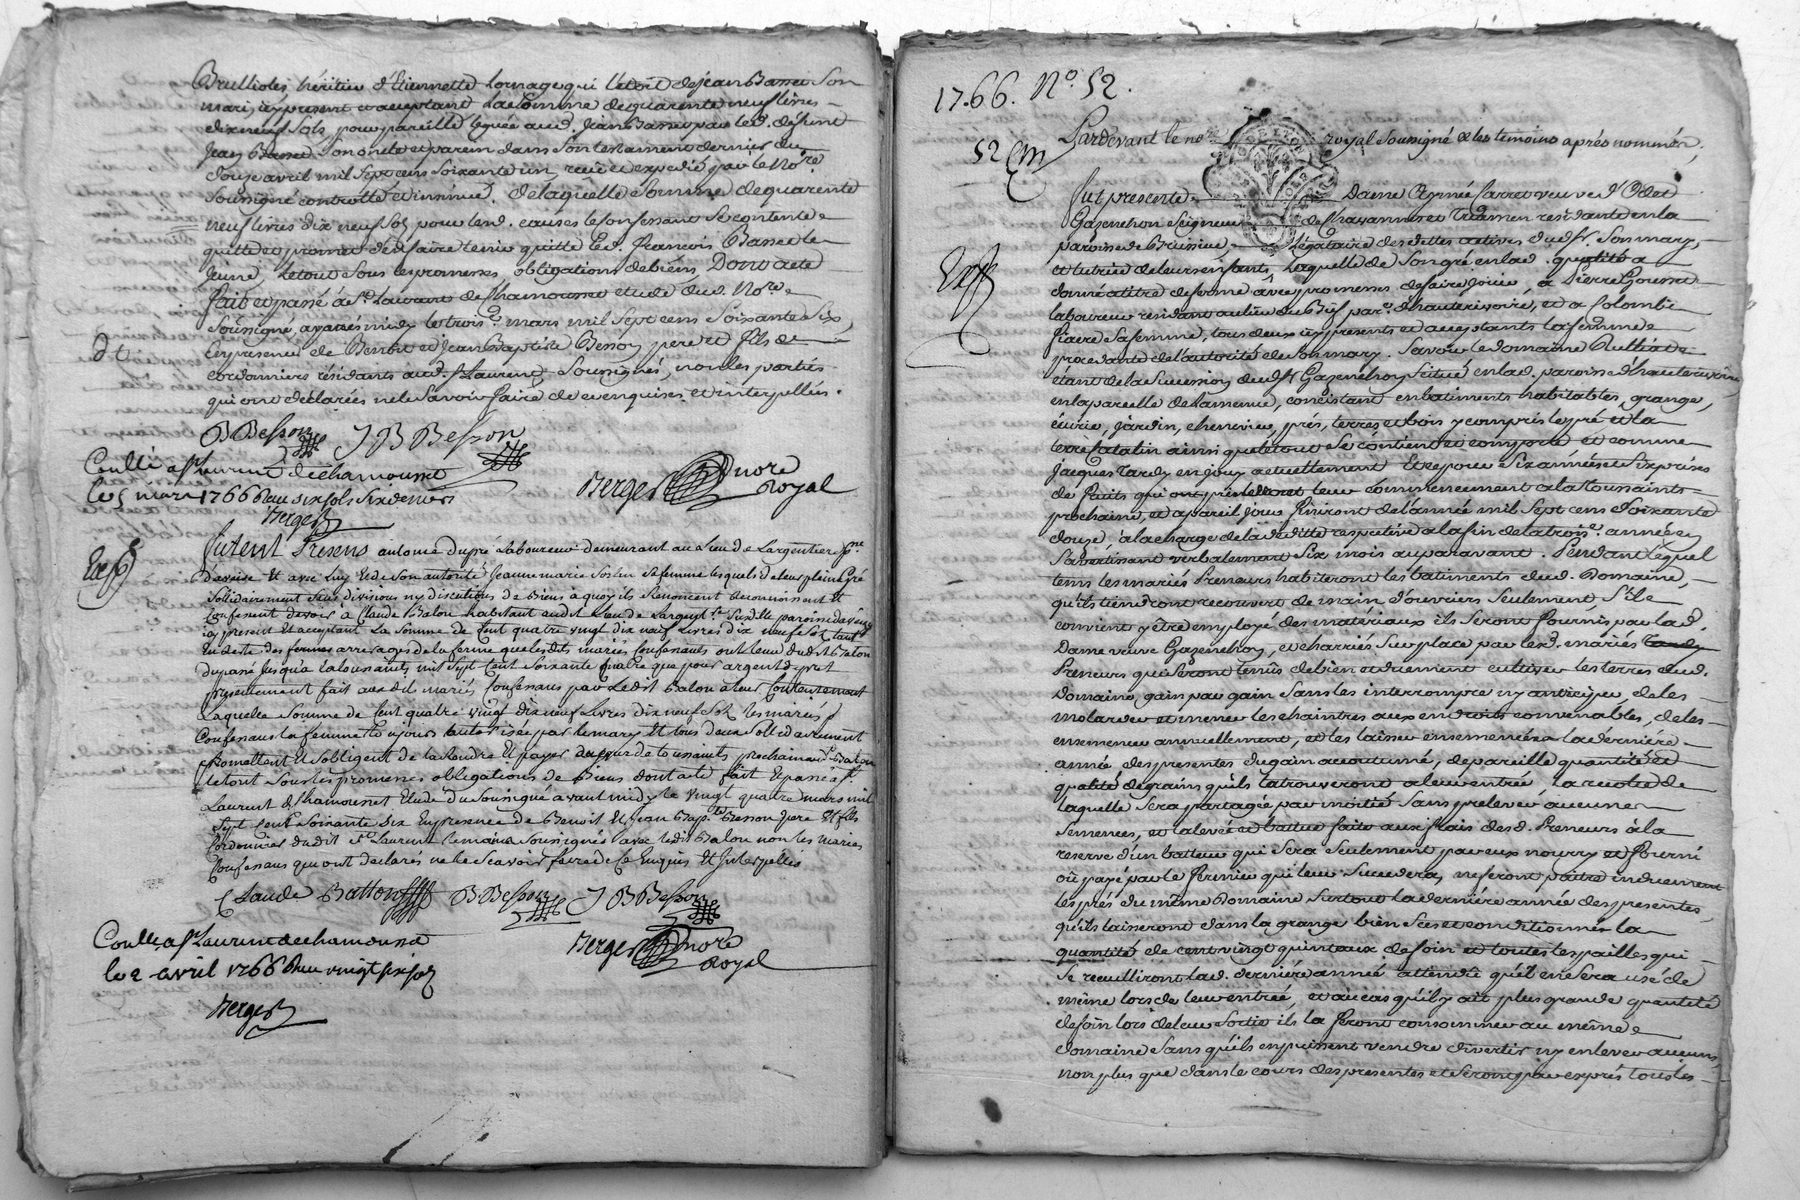 Brulliolés héritier d'Etiennette Lornage qui l'etoit de jean Basset son
mari, icy present et acceptant La somme de quarente neuf livres
dix neuf sols pour pareille leguée aud. Jean Basset par led. défunt
Jean Basset son oncle et parein dans son testament dernier du
douze avril mil sept cens soixante un, recû et expedié par le No.re
soussigné controllé et insinué, de laquelle somme de quarente
neuf livres dix neuf sols pour lesd. causes le confessant se contente
quitte et promet de faire tenir quitte led. françois Basset le
jeune, le tout sous les promesses, obligations de biens, Dont acte
fait et passé à St. Laurent de Chamousset etude dud. No.re
soussigné, avant midy le trois.e mars mil sept cens soixante six,
en presence de Benoit et Jean Baptiste Besson pere et fils
cordonniers résidants aud. St. Laurent soussignés, non les parties
qui ont déclarées ne le savoir faire de ce enquises et interpellés.
B Besson J B Besson
Conllé a St Laurent de chamousset
le 5 mars 1766 Recu six sols six deniers
Berger
Berger nore
Royal
furent Presens antoine dupré Laboureur demeurant au Lieu de Largentiere p.sse
d'aveise Et avec Luy Et de son autorité Jeanne marie sa femme lesquels de leur plein gré
sollidairement sans divisions ny discutions de Biens a quoy ils Renoncent Reconnoissent Et
Confessent devoir à Claude Balon habitant audit Lieu de Largent.re susditte paroisse d'aveize
icy present Et acceptant La somme de Cent quatre vingt dix neuf Livres dix neuf sols tant
En Reste des fermes arrerages de la ferme que lesdits mariés Confessants ont tenu dudit Balon
du passé jusqu'a la toussaints mil sept Cent soixante quatre que pour argent de pret
presentement fait auxdits mariés Confessans par Ledit Balon a leur Contentement
Laquelle somme de Cent quatre vingt dix neuf Livres dix neuf sols les mariés
Confessans la femme toujours authorisée par le mary Et tous deux sollidairement
Promettent Et s'obligent de la Rendre Et payer au jour de toussaints prochain aud. Balon
le tout sous les promesses obligations de Biens dont acte fait Et passé a St
Laurent de Chamousset Etude du soussigné avant midy le vingt quatre mars mil
sept Cent soixante six En presence de Benoit Et Jean Bap.te Besson pere Et fils
Cordonniers dudit St Laurent temoins soussignés avec ledit Balon non les mariés
Confessans qui ont declarés ne le scavoir faire de Ce Enquis Et interpellés
Claude Batton B Besson J B Besson
Conllé a St Laurent de chamousset
le 2 avril 1766 Recu vingt six sols
Berger
Berger nore
Royal
1766. No. 52.
52
Pardevant le no.re royal soussigné & les temoins après nommés,
fut presente Dame Aymée Carret veuve d'Odet
Gazenchon seigneur de Chavannes et Tresmen residante en la
paroisse de Brussieu, Légataire des dettes actives dud. Sr. son mary,
et tutrice de leurs enfants, Laquelle de son gré en lad. qualité a
donné a titre de ferme avec promesses de faire jouir, à Pierre Gousset
laboureur residant au lieu du par.e d'hauterivoire, et a Colombe
fiaere sa femme, tous deux icy presents et acceptants la femme
procedante de l'autorité de son mary. Savoir le domaine Rulliat
étant de la succession dud. Sr Gazenchon, situé en lad. paroisse d'hauterivoire,
en la parcelle de consistant en batiments habitables, grange,
écurie, jardin, cheneviere, prés, terres et bois y compris le pré et la
terre catalin ainsi que le tout se contient et comporte et comme
jacques tardy en jouy actuellement Et ce pour six années et six prises
de fruits qui ont pris leur commencement a la toussaints
prochaine, et a pareil jour finiront de l'année mil sept cens soixante
douze, a la charge de la deditte respective a la fin de la trois.e année,
s'avertissant verbalement six mois auparavant. Pendant lequel
tems les mariés Preneurs habiteront les batiments dud. Domaine,
qu'ils tiendront recouvert de main d'ouvriers seulement, S'ile
convient y être employé des matériaux ils seront fournis par lad.
Dame veuve Gazenchon, et charriés sur place par lesd. mariés
Preneurs qui seront tenus de bien et duement cultiver les terres dud.
Domaine, gain par gain sans les interrompre ny anticiper, de les
molarder et mener les chaintres aux endroits convenables, de les
ensemencer annuellement, et les laisser ensemencées a la derniere
année des presentes du gain accoutumé, de pareille quantité et
qualité de grains qu'ils la trouveront a leur entrée la recolte de
laquelle sera partagée par moitié sans prelever aucunes
semences, et la levée et battue faite aux frais desd. Preneurs à la
reserve d'un batteur qui sera seulement par eux nourry et fourni
ou payé par le fermier qui leur succedera, ne feront paitre induement
les prés du même Domaine surtout la derniére année des presentes,
qu'ils laisseront dans la grange bien sec et conditionné la
quantité de cent vingt quintaux de foin et toutes les pailles qui
se recueilliront lad. derniére année attendu qu'il en sera usé de
même lors de leur entrée, et au cas qu'il y ait plus grande quantité
de foin lors de leur sortie ils la feront consommer au même
domaine sans qu'ils en puissent vendre divertir ny enlever aucuns,
non plus que dans le cours des presentes et seront par exprès tous les